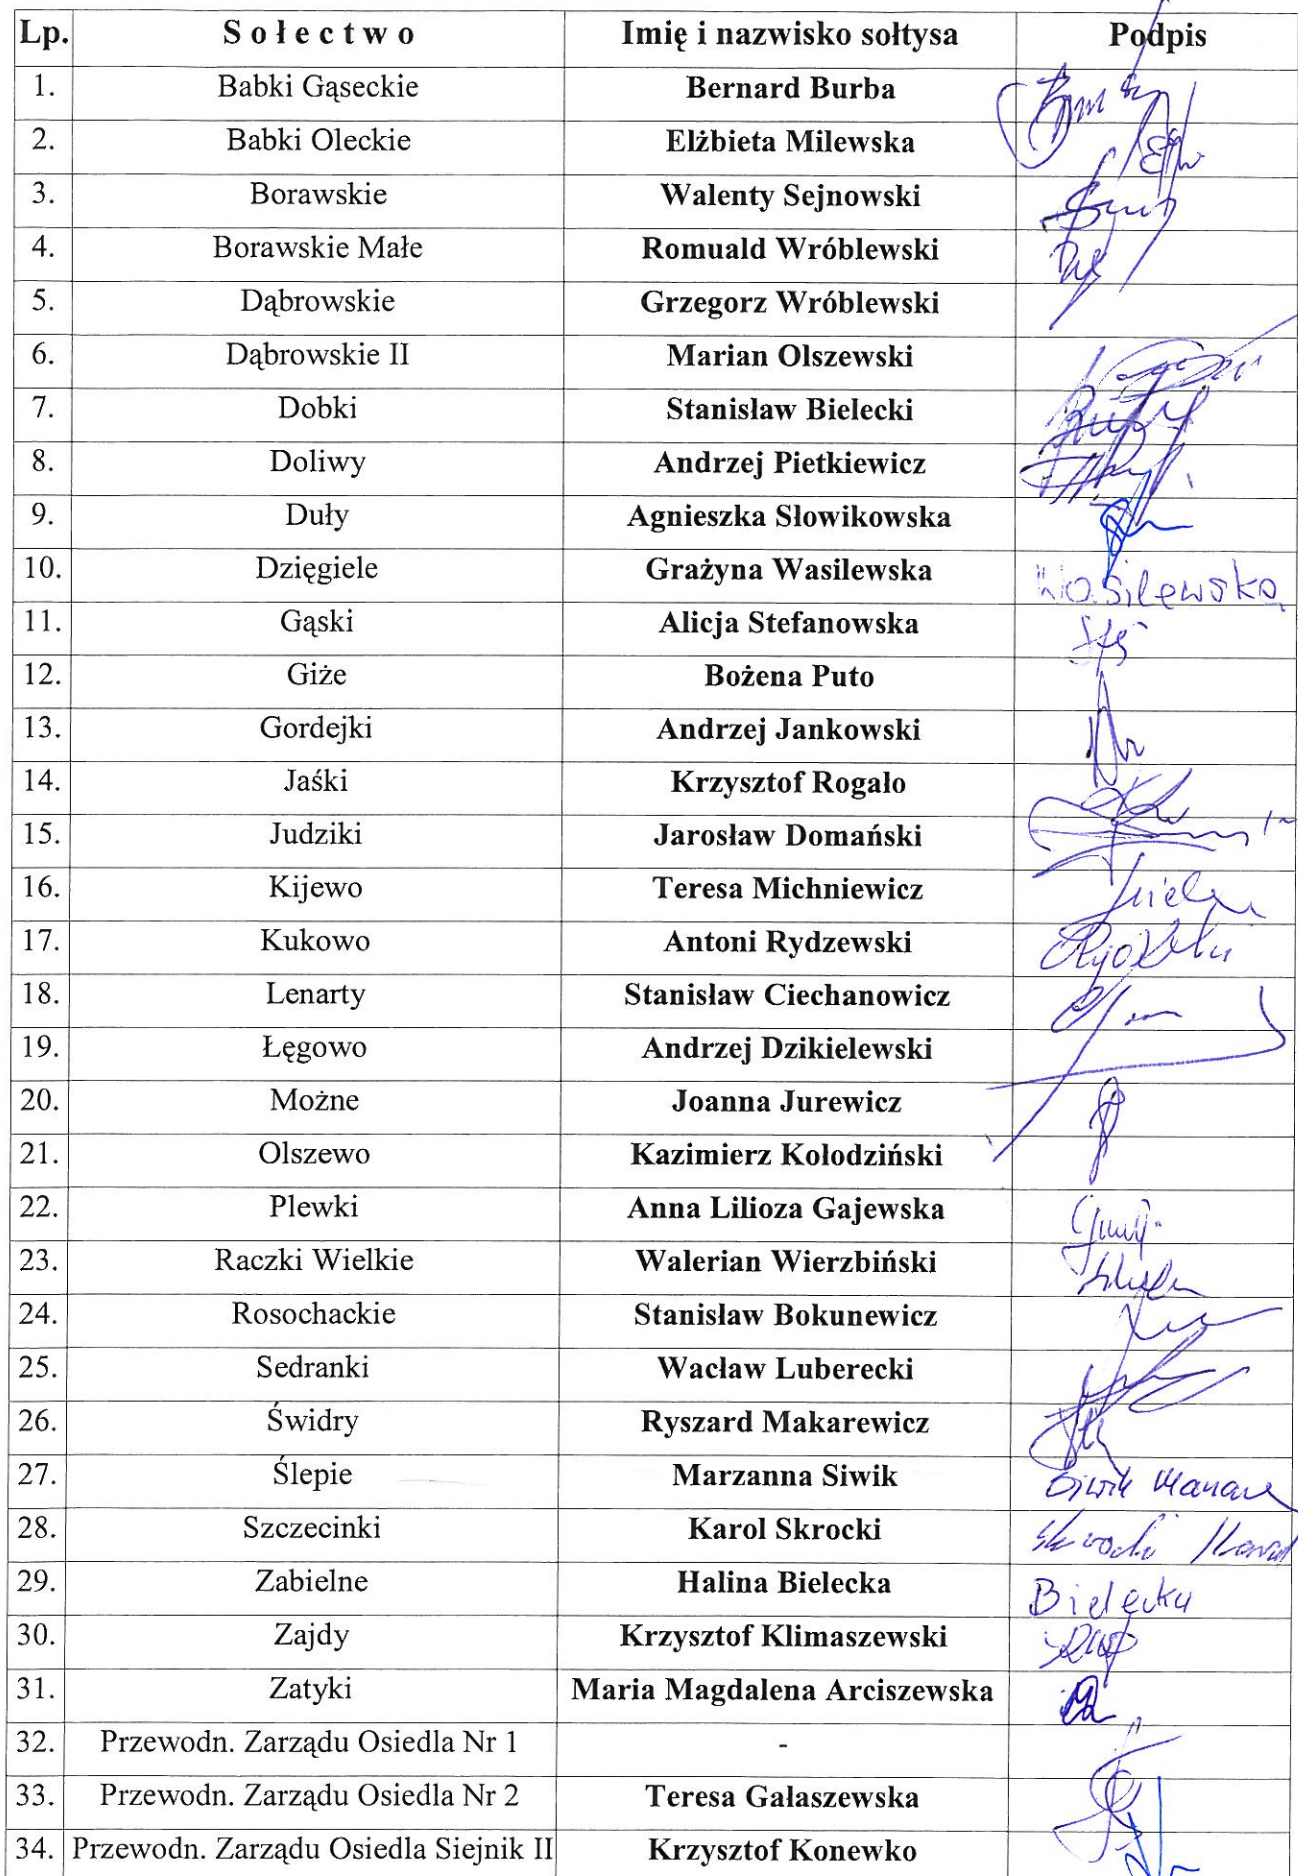 Lp. Sołectwo Imię i nazwisko sołtysa Podpis
1. Babki Gąseckie Bernard Burba
2. Babki Oleckie Elżbieta Milewska
3. Borawskie Walenty Sejnowski
4. Borawskie Małe Romuald Wróblewski
5. Dąbrowskie Grzegorz Wróblewski
6. Dąbrowskie II Marian Olszewski
7. Dobki Stanisław Bielecki
8. Doliwy Andrzej Pietkiewicz
9. Duły Agnieszka Słowikowska
10. Dzięgiele Grażyna Wasilewska Wasilewska
11. Gąski Alicja Stefanowska
12. Giże Bożena Puto
13. Gordejki Andrzej Jankowski
14. Jaśki Krzysztof Rogało
15. Judziki Jarosław Domański
16. Kijewo Teresa Michniewicz
17. Kukowo Antoni Rydzewski
18. Lenarty Stanisław Ciechanowicz
19. Łęgowo Andrzej Dzikielewski
20. Możne Joanna Jurewicz
21. Olszewo Kazimierz Kołodziński
22. Plewki Anna Lilioza Gajewska
23. Raczki Wielkie Walerian Wierzbiński
24. Rosochackie Stanisław Bokunewicz
25. Sedranki Wacław Luberecki
26. Świdry Ryszard Makarewicz
27. Ślepie Marzanna Siwik Siwik
28. Szczecinki Karol Skrocki Skrocki Karol
29. Zabielne Halina Bielecka Bielecka
30. Zajdy Krzysztof Klimaszewski
31. Zatyki Maria Magdalena Arciszewska
32. Przewodn. Zarządu Osiedla Nr 1 -
33. Przewodn. Zarządu Osiedla Nr 2 Teresa Gałaszewska
34. Przewodn. Zarządu Osiedla Siejnik II Krzysztof Konewko